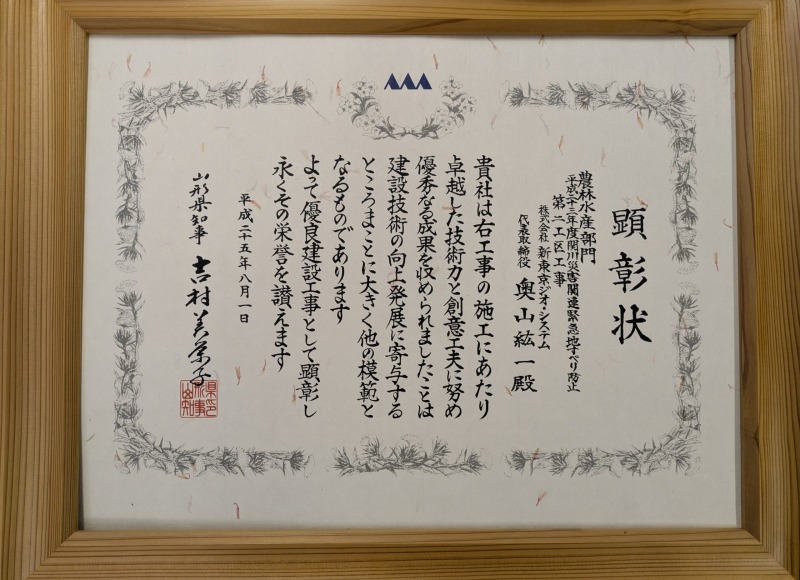 顕彰状
農林水産部門
平成二十三年度関川災害関連緊急地すべり防止
第二工区工事
株式会社 新東京ジオ・システム
代表取締役 奥山紘一殿
貴社は右工事の施工にあたり
卓越した技術力と創意工夫に努め
優秀なる成果を収められましたことは
建設技術の向上発展に寄与する
ところまことに大きく他の模範と
なるものであります
よって優良建設工事として顕彰し
永くその栄誉を讃えます
平成二十五年八月一日
山形県知事 吉村美栄子